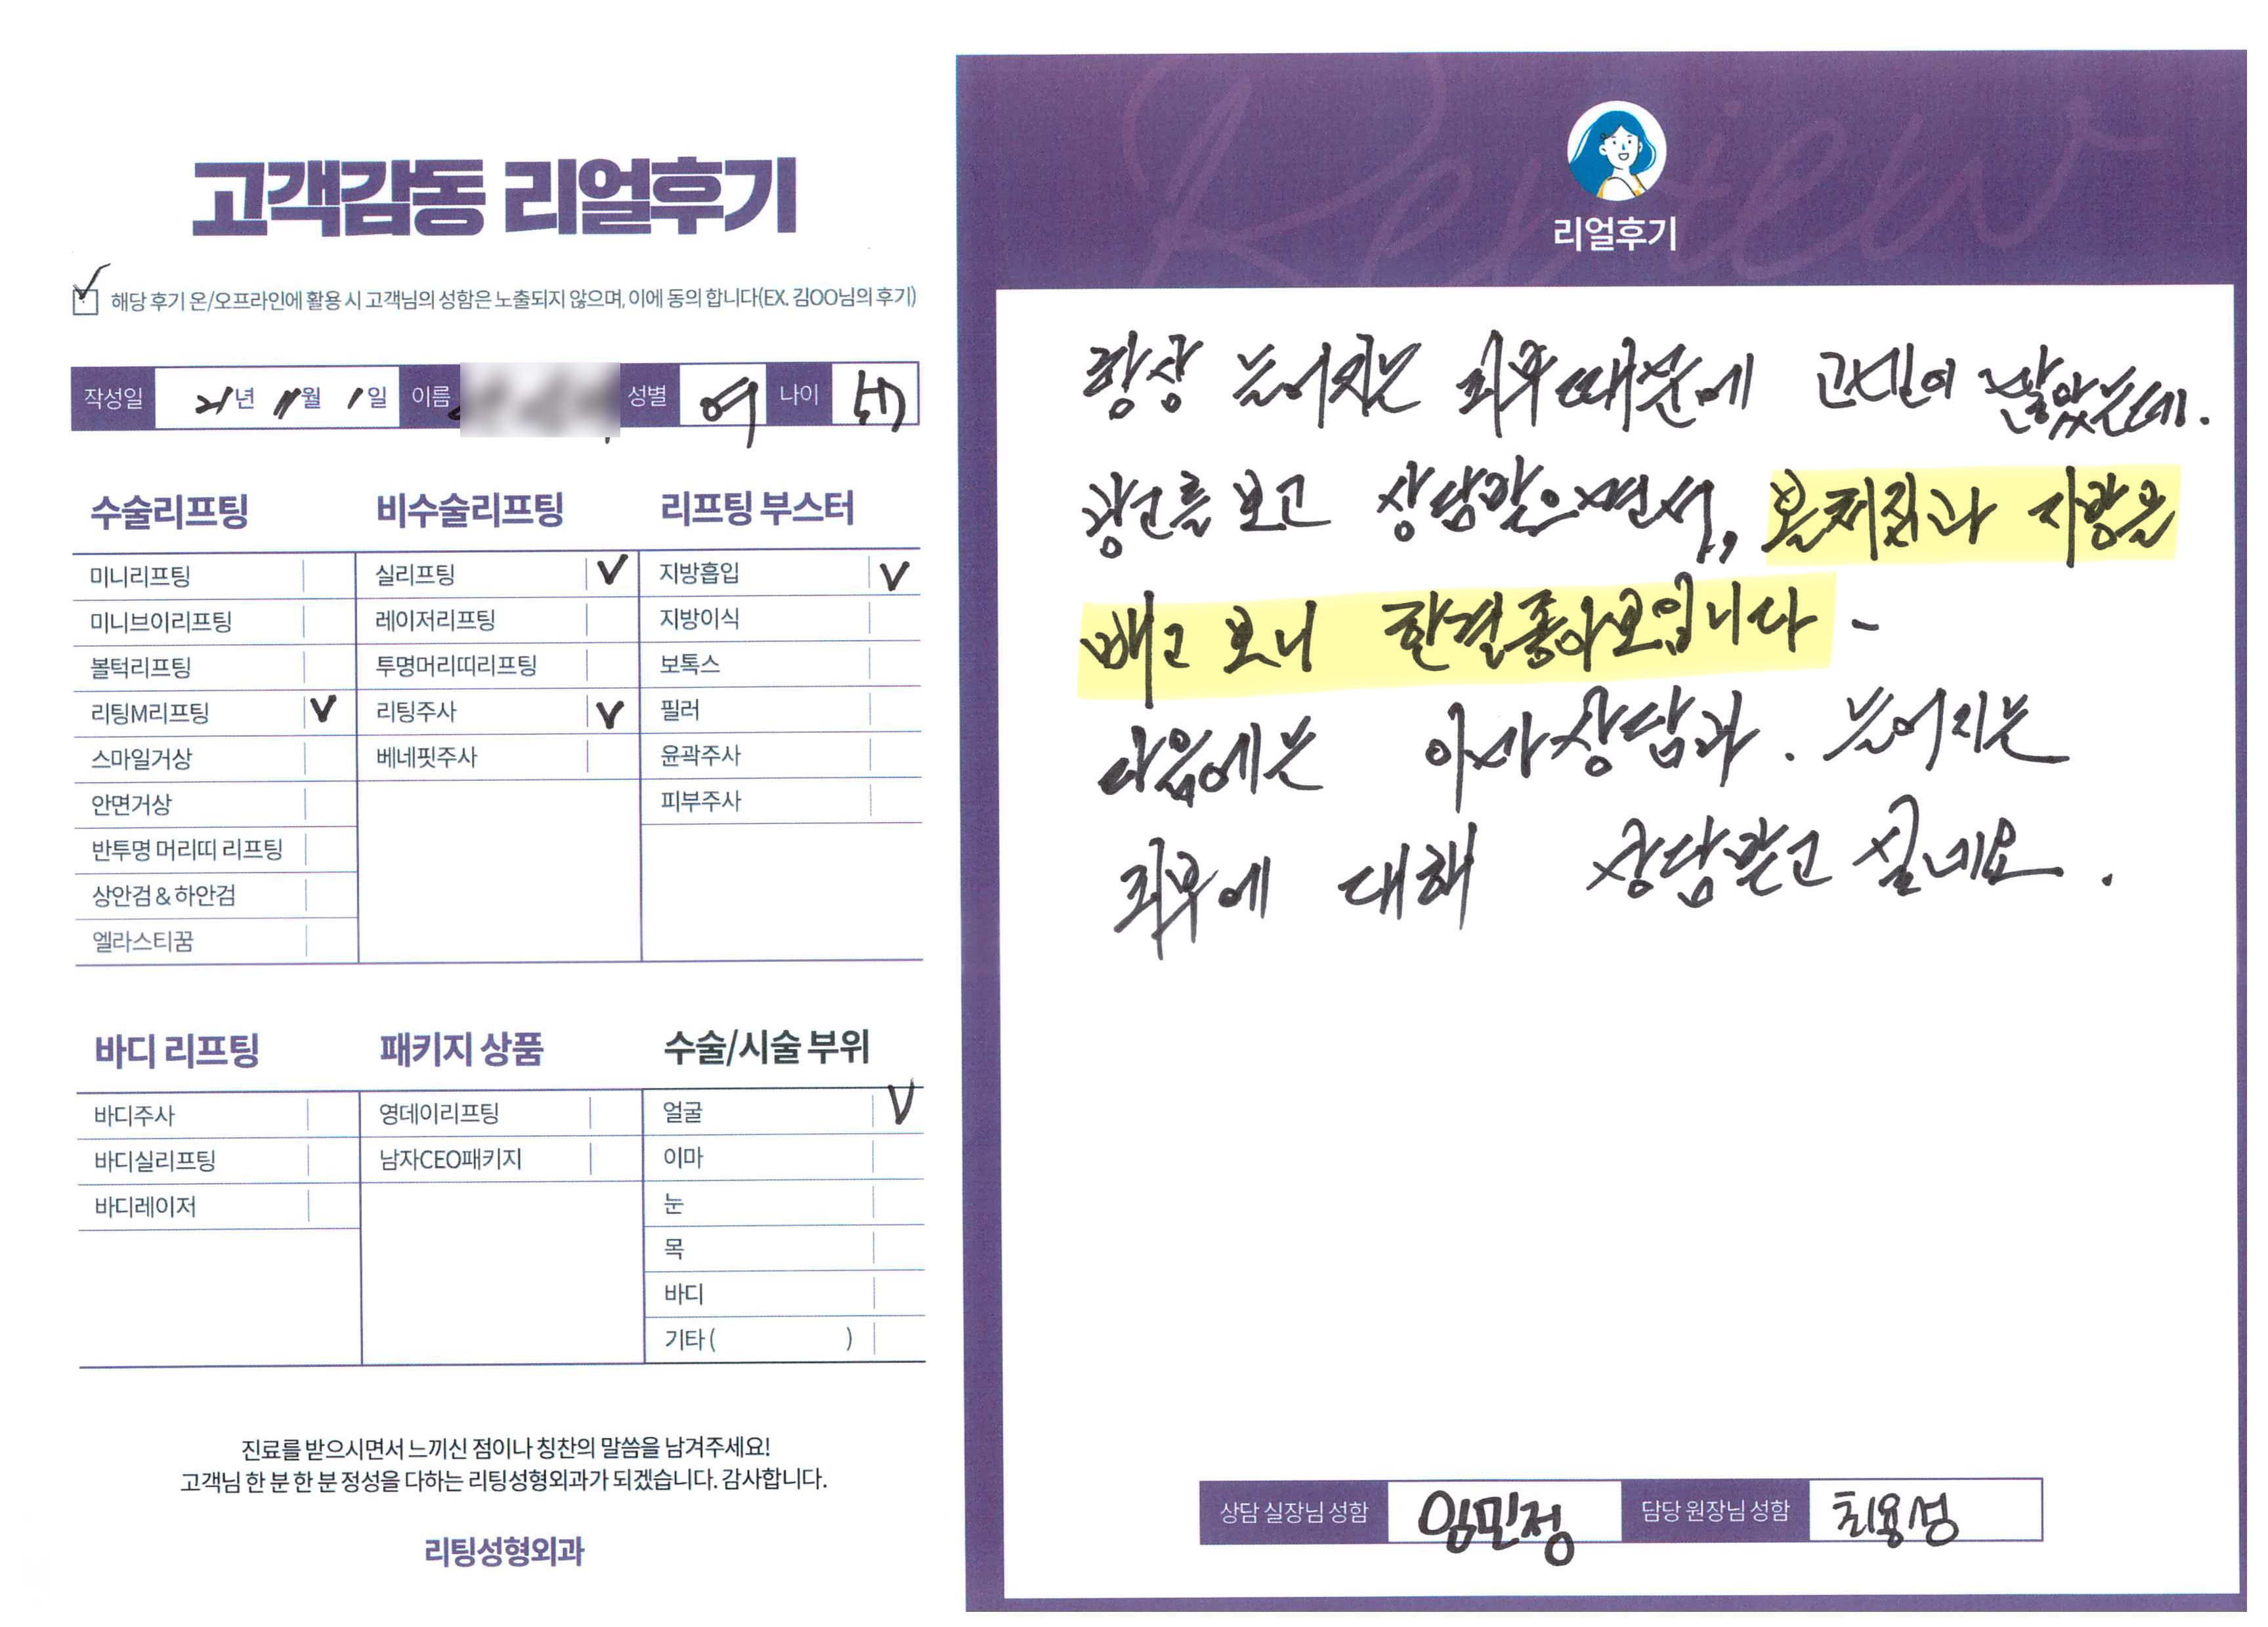 고객감동 리얼후기
해당 후기 온/오프라인에 활용 시 고객님의 성함은 노출되지 않으며, 이에 동의 합니다(EX. 김OO님의 후기)
작성일 21년 11월 1일 이름 성별 여 나이
수술리프팅
미니리프팅
미니브이리프팅
볼턱리프팅
리팅M리프팅 V
스마일거상
안면거상
반투명 머리띠 리프팅
상안검 & 하안검
엘라스티꿈
비수술리프팅
실리프팅 V
레이저리프팅
투명머리띠리프팅
리팅주사 V
베네핏주사
리프팅 부스터
지방흡입 V
지방이식
보톡스
필러
윤곽주사
피부주사
바디 리프팅
바디주사
바디실리프팅
바디레이저
패키지 상품
영데이리프팅
남자CEO패키지
수술/시술 부위
얼굴 V
이마
눈
목
바디
기타 ( )
진료를 받으시면서 느끼신 점이나 칭찬의 말씀을 남겨주세요!
고객님 한 분 한 분 정성을 다하는 리팅성형외과가 되겠습니다. 감사합니다.
리팅성형외과
Review
리얼후기
항상 늘어지는 피부때문에 고민이 많았는데.
광고를 보고 상담받으면서, 볼처짐과 지방을
빼고 보니 한결좋아보입니다 -
다음에는 이마상담과. 늘어지는
피부에 대해 상담받고 싶네요.
상담 실장님 성함 임민정 담당 원장님 성함 최용성